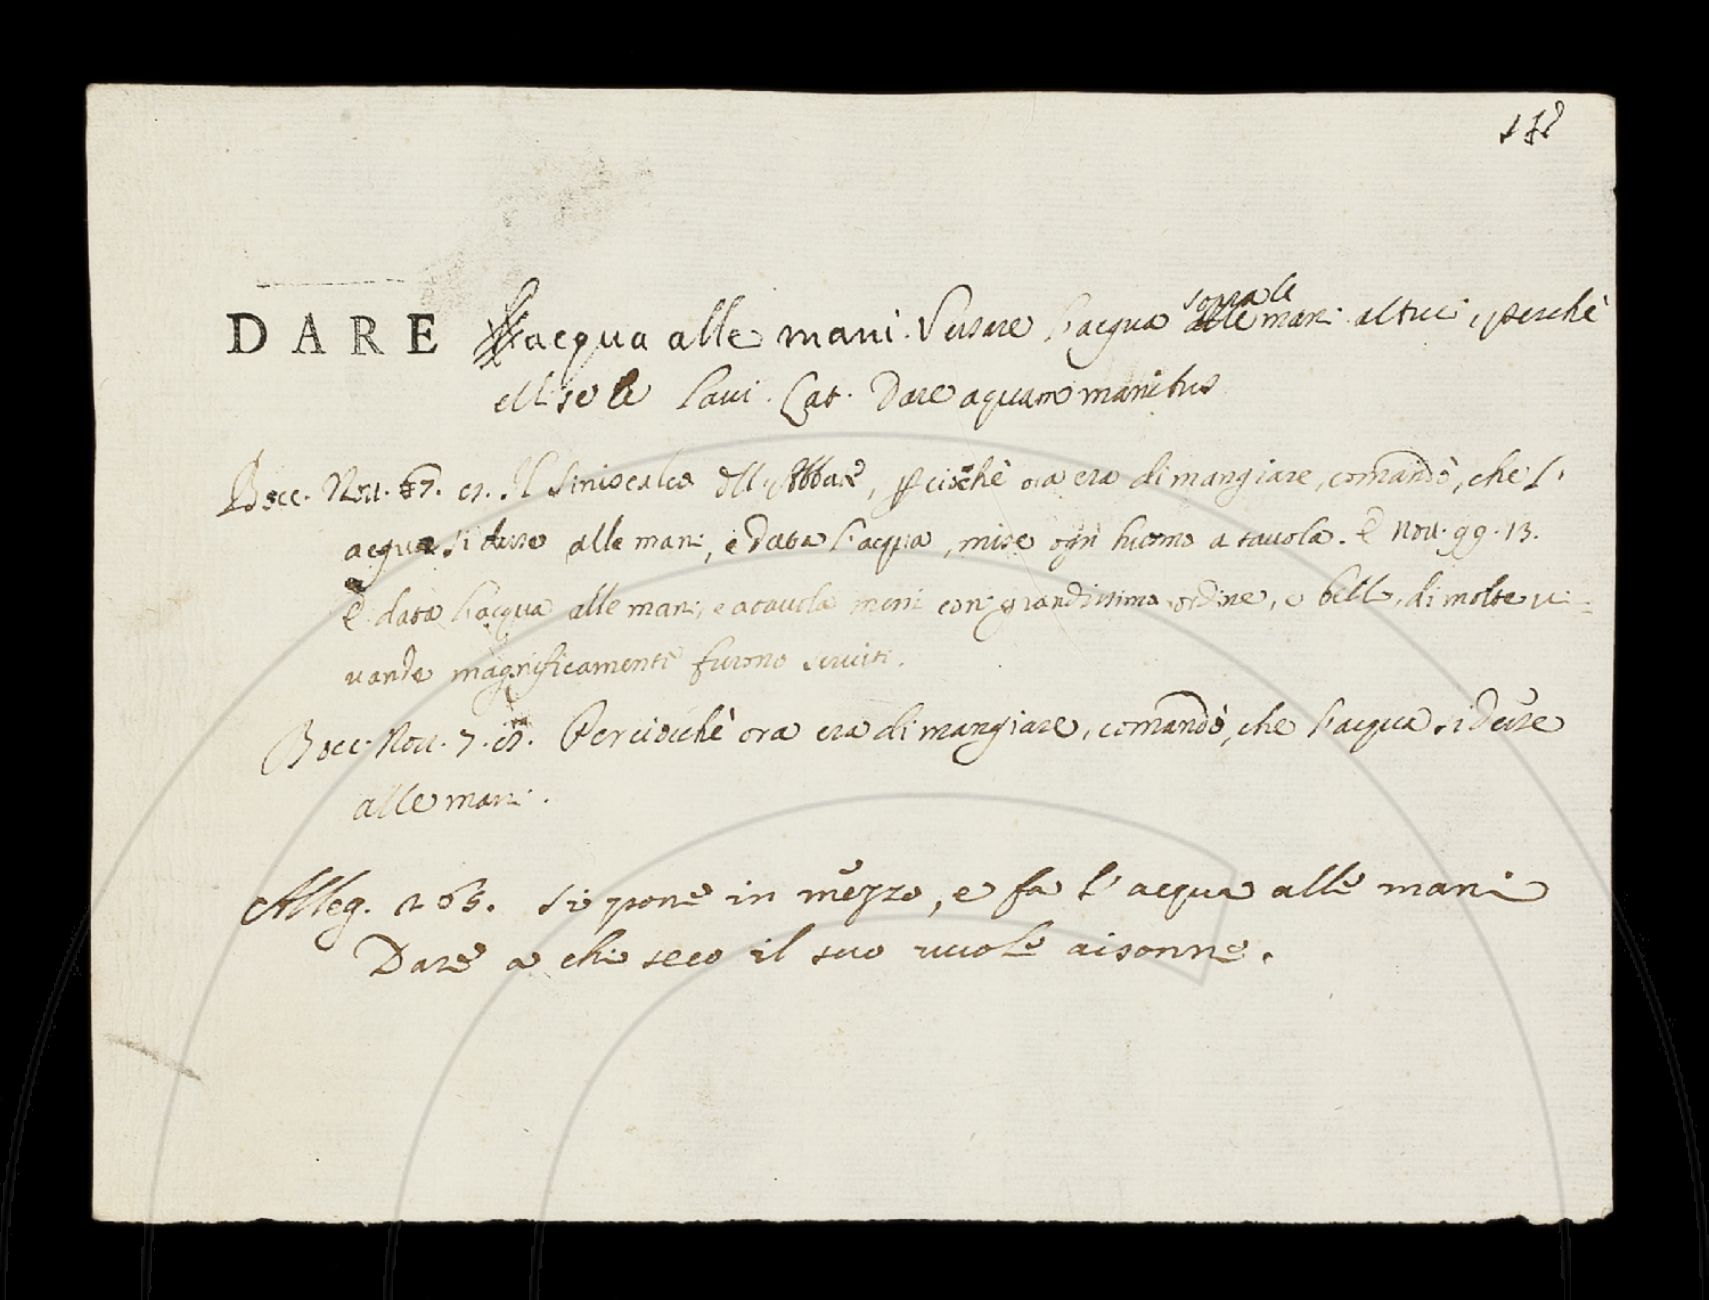 DARE l'acqua alle mani. Versare l'acqua sopra le mani altrui, perchè
elli se le lavi. Lat. Dare aquam manibus
Bocc. Nov. 7. 12. Il Siniscalco dell'Abbate, perciochè ora era di mangiare, comandò, che l'
acqua si desse alle mani, e data l'acqua, mise ogni huomo a tavola. E nov. 99. 13.
E data l'acqua alle mani, e a tavola messi con grandissimo ordine, e bello, di molte vi-
vande magnificamente furono serviti.
Bocc. Nov. 7. 12. Perciochè ora era di mangiare, comandò, che l'acqua si desse
alle mani.
Alleg. 265. Si pone in mezzo, e fa l'acqua alle mani
Dare a chi seco il suo vuole aisonne.